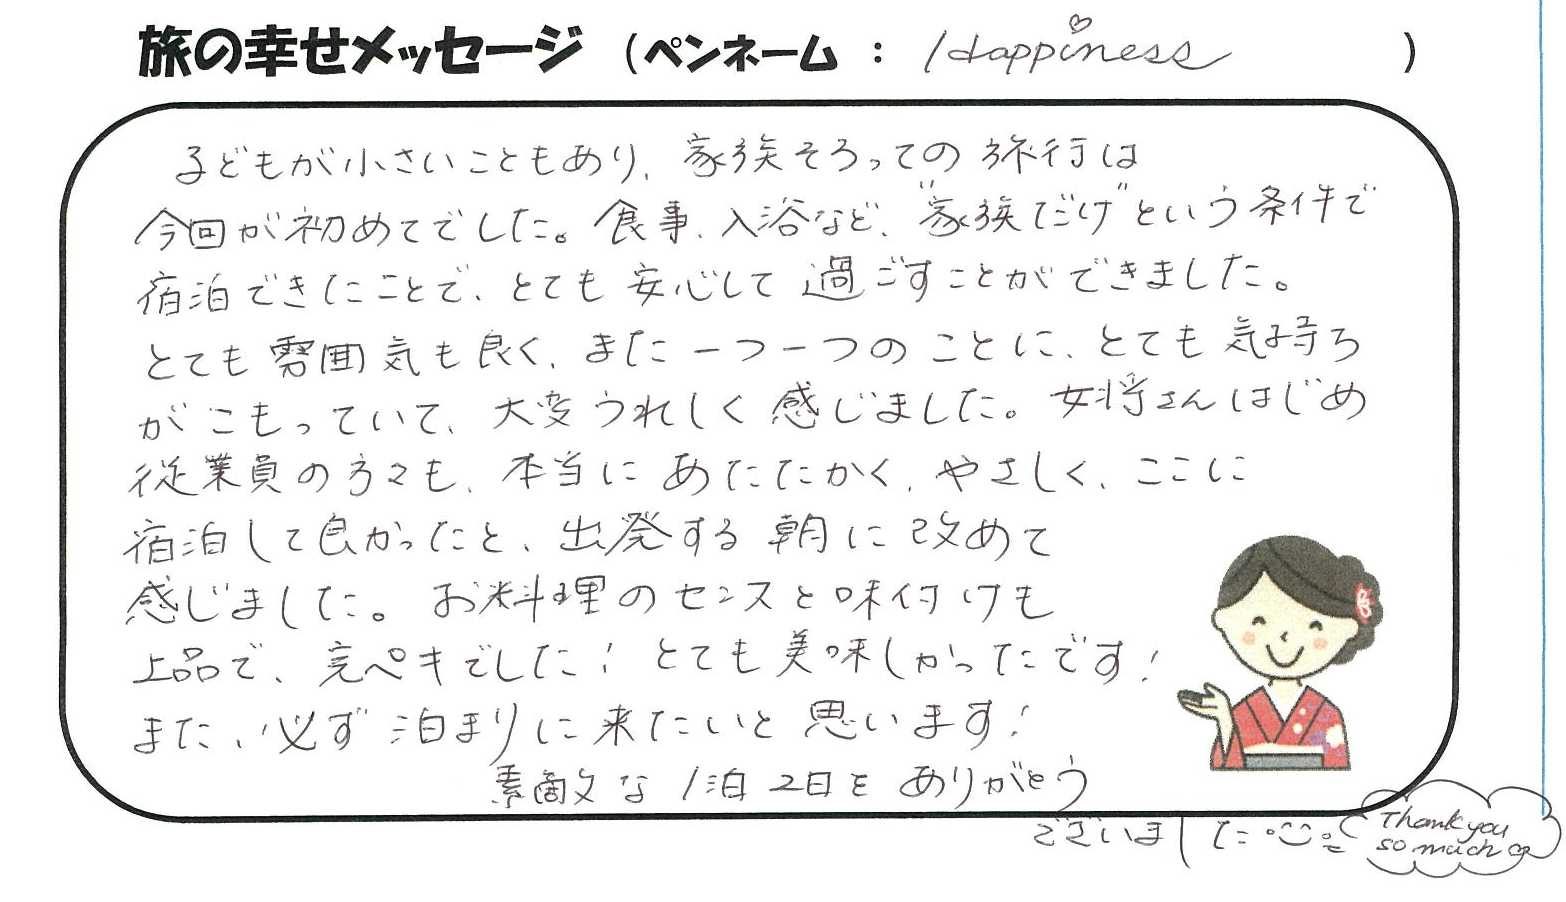 旅の幸せメッセージ (ペンネーム : Happiness )
子どもが小さいこともあり、家族そろっての旅行は
今回が初めてでした。食事、入浴など、"家族だけ"という条件で
宿泊できたことで、とても安心して過ごすことができました。
とても雰囲気も良く、また一つ一つのことに、とても気持ち
がこもっていて、大変うれしく感じました。女将さんはじめ
従業員の方々も、本当にあたたかく、やさしく、ここに
宿泊して良かったと、出発する朝に改めて
感じました。お料理のセンスと味付けも
上品で、完ペキでした!とても美味しかったです!
また、必ず泊まりに来たいと思います!
素敵な1泊2日をありがとう
ございました
Thank you
so much♡